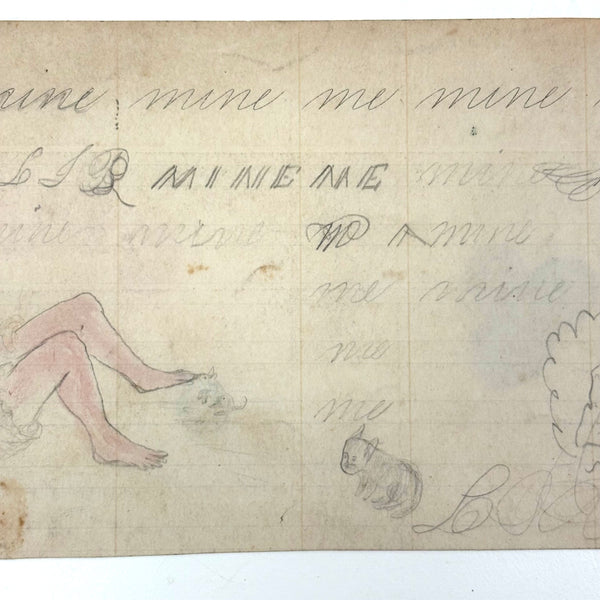 mine mine me mine
L I R MINE ME mine
mine mine me mine
me mine
me
me
L